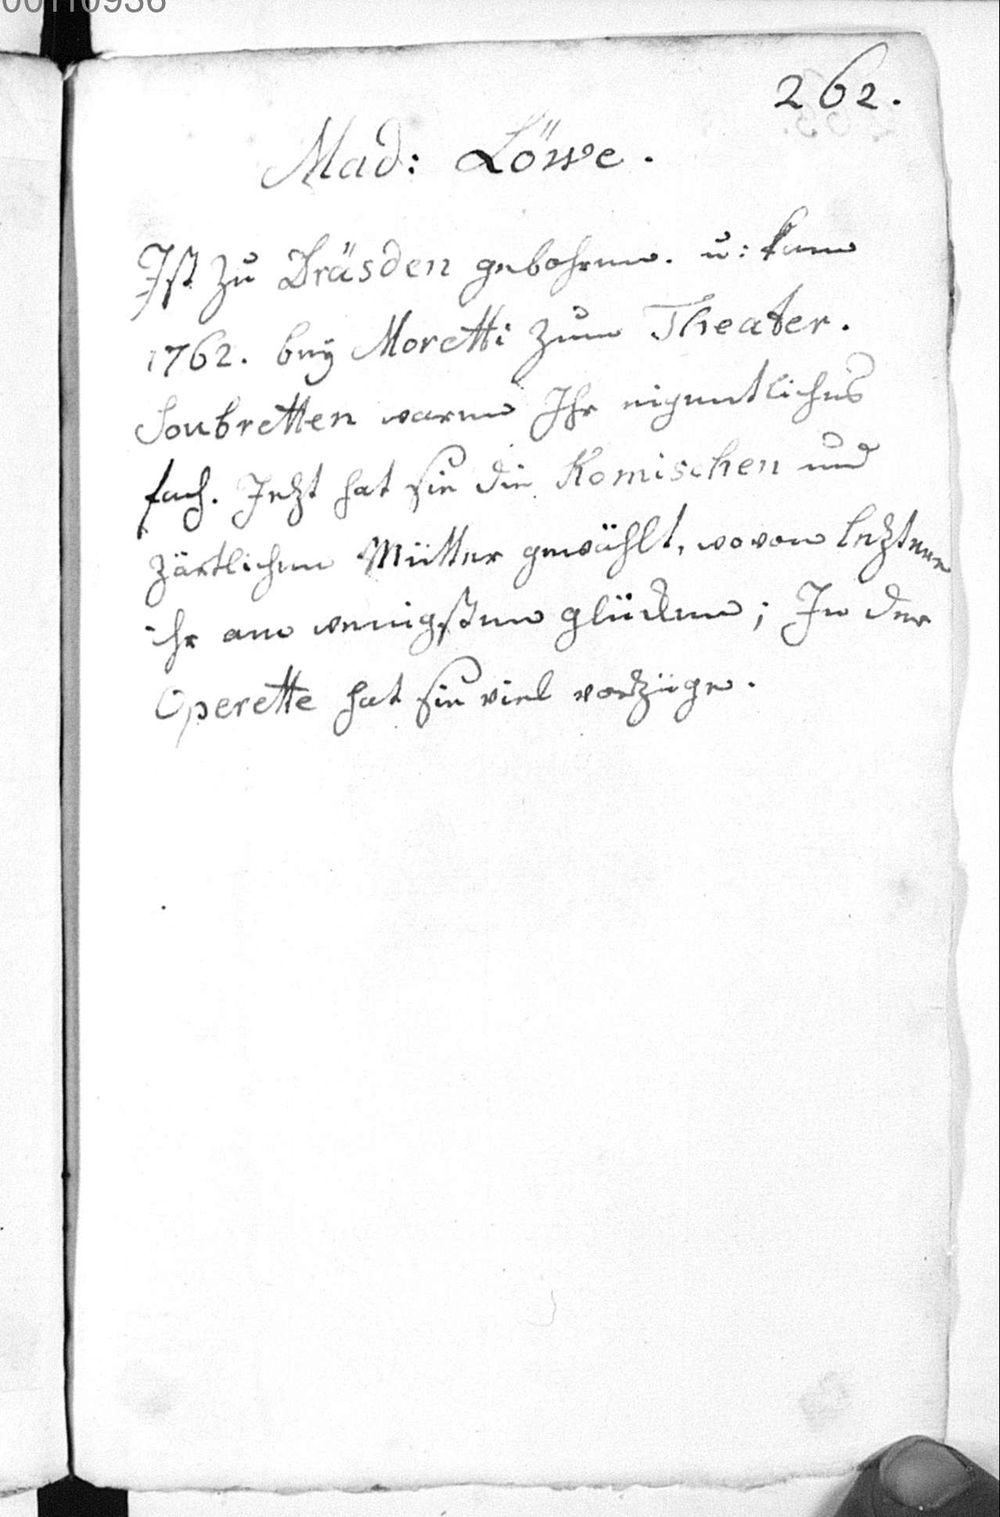 00110936
262.
Mad: Löwe.
Ist zu Dräsden gebohren. u: kam
1762. beÿ Moretti zum Theater.
Soubretten waren Ihr eigentliches
fach. Jetzt hat sie die Komischen und
zärtlichen Mütter gewählt, wovon letztere
ihr am wenigsten glücken; In der
Operette hat sie viel vorzüge.